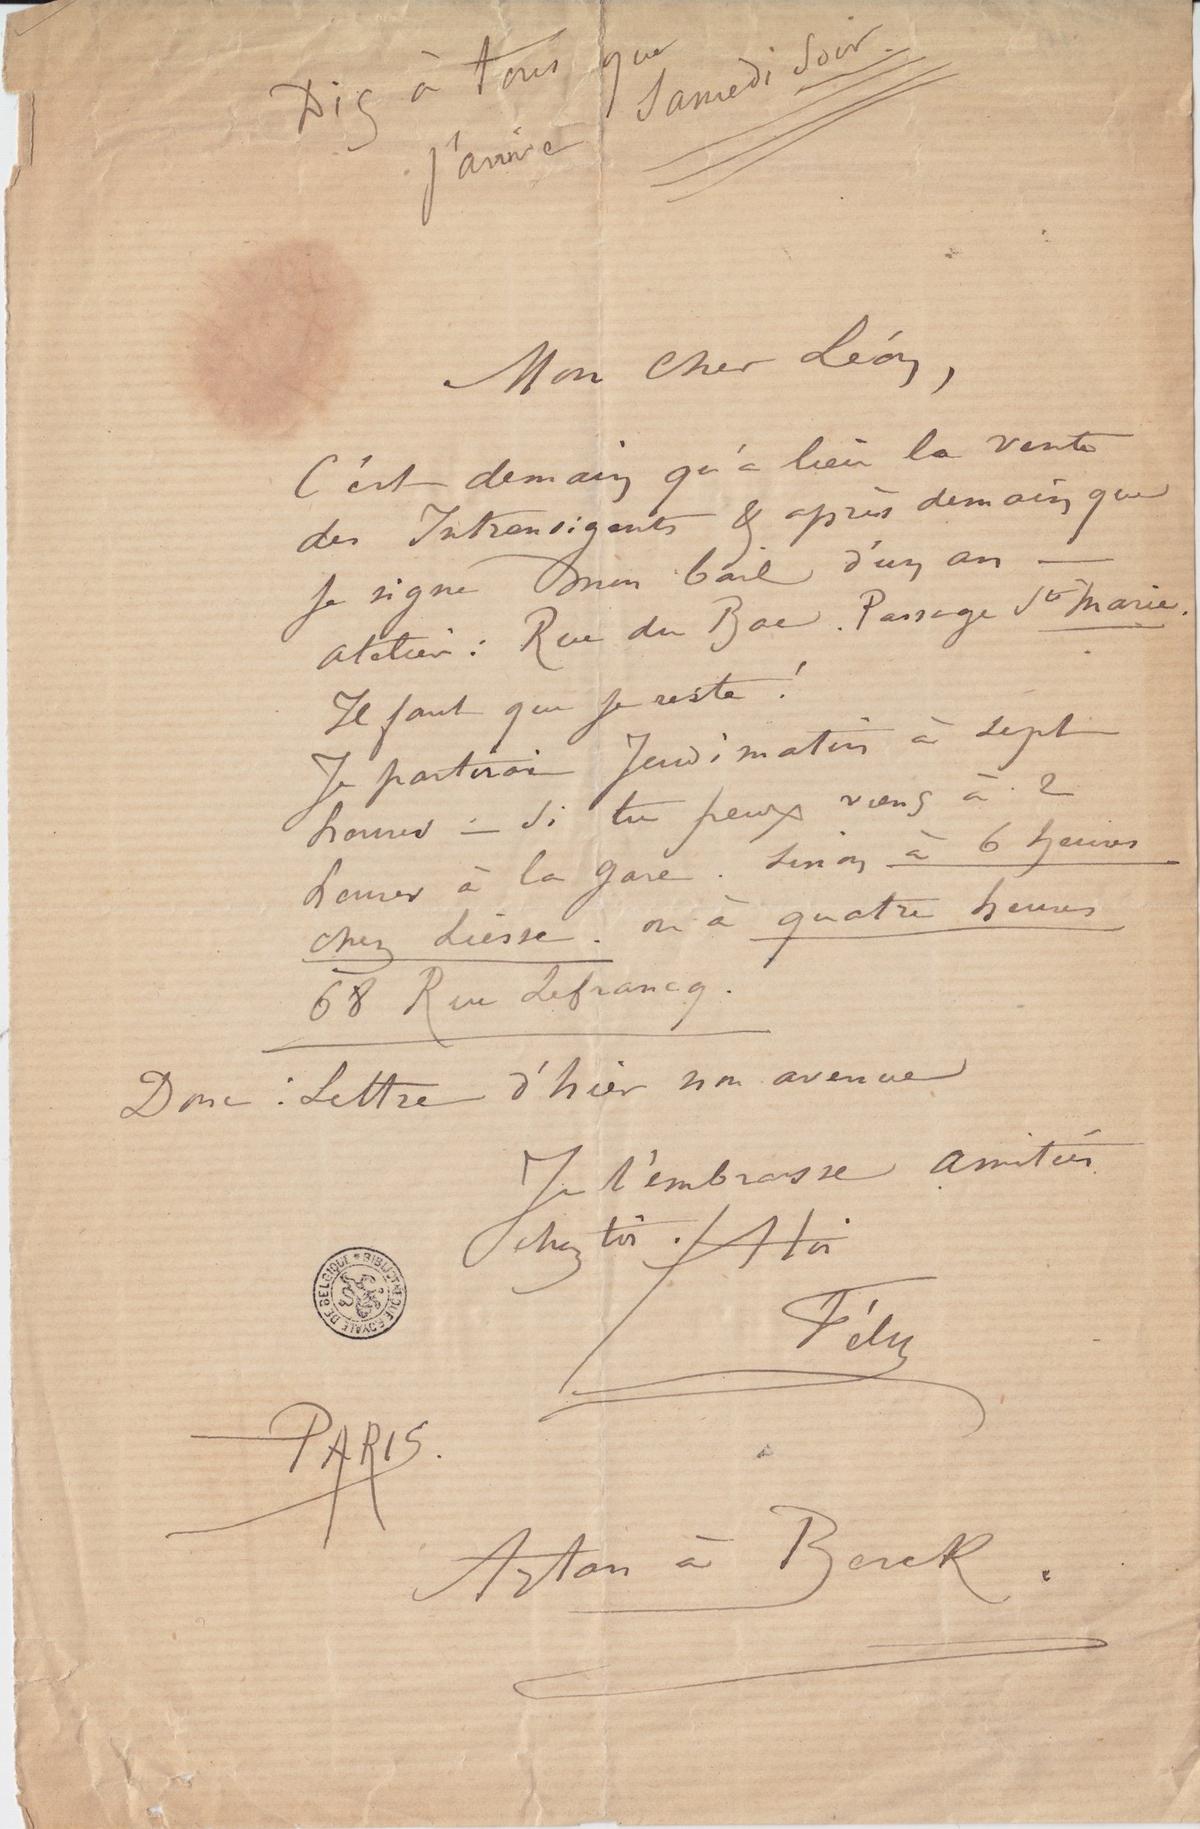 Dis à tous que
j'arrive Samedi Soir.
Mon cher Léon,
C'est demain qu'a lieu la vente
des Intransigents & après demain que
je signe mon bail d'un an —
atelier : Rue du Bac. Passage Ste Marie.
Il faut que je reste !
Je partirai Jeudi matin à sept
heures – si tu peux viens à 2
heures à la gare. Sinon à 6 heures
chez Liesse. ou à quatre heures
68 Rue Lefrancq.
Donc : Lettre d'hier non avenue
Je t'embrasse amitiés
chez toi. / A toi
Fély
BIBLIOTHEQUE ROYALE DE BELGIQUE *
PARIS.
Artan à Berck.